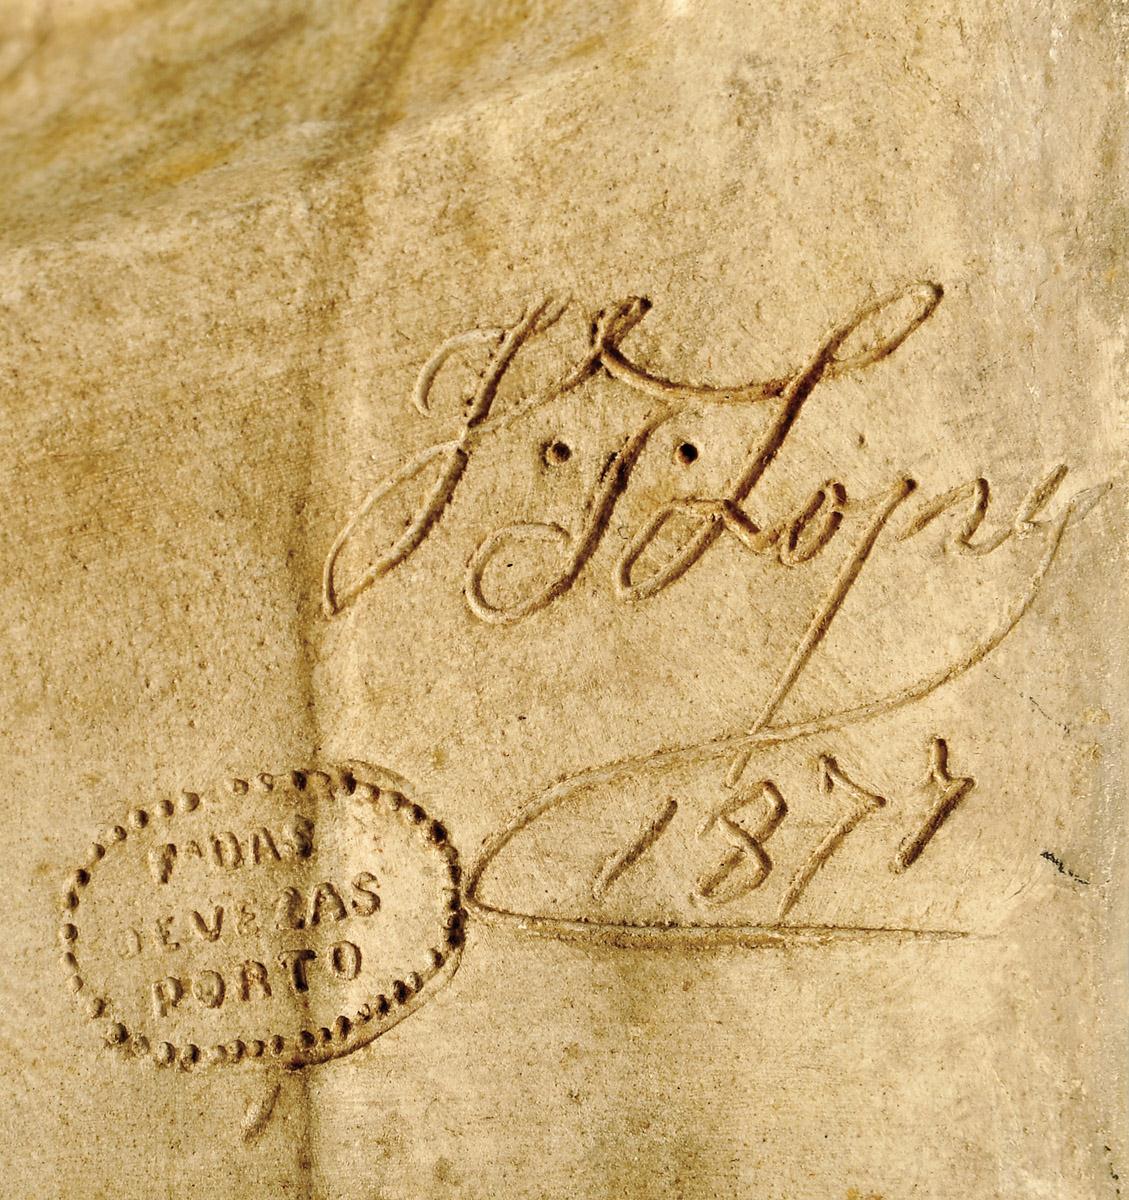 J. J. Lopes
1877
Fª DAS
DEVEZAS
PORTO